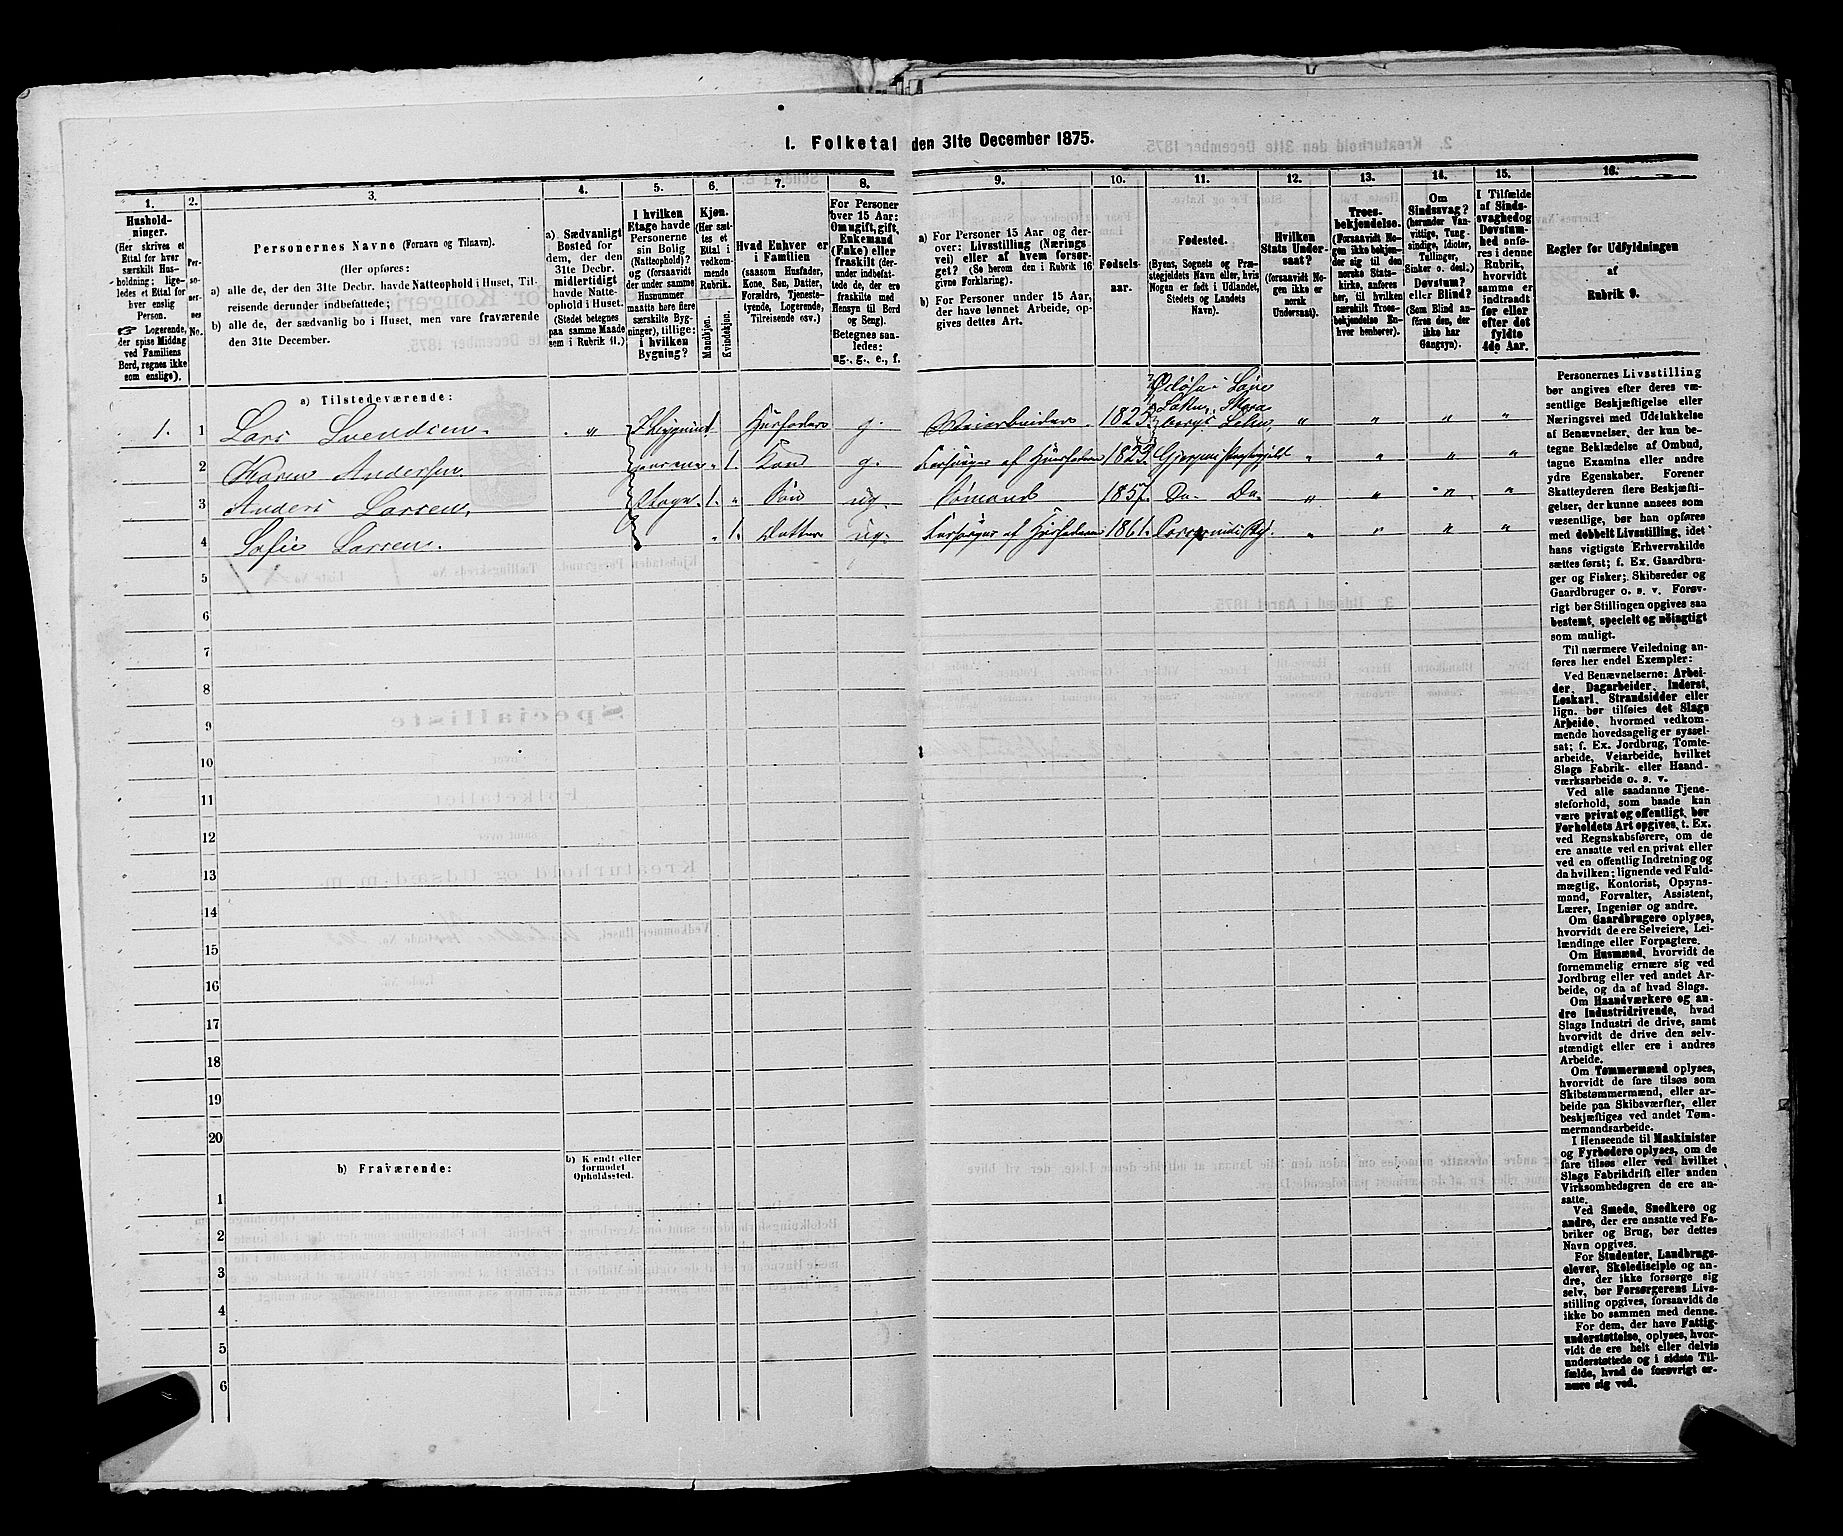 1. Folketal den 31te December 1875.
1.
Hushold-
ninger.
(Her skrives et
Ettal for hver
særskilt Hus-
holdning; lige-
ledes et Ettal for
hver enslig
Person.
Logerende,
der spise Middag
ved Familiens
Bord, regnes ikke
som enslige).
2.
Per-
so-
ner-
nes
No.
3.
Personernes Navne (Fornavn og Tilnavn).
(Her opføres:
a) alle de, der den 31te Decbr. havde Natteophold i Huset, Til-
reisende derunder indbefattede;
b) alle de, der sædvanlig bo i Huset, men vare fraværende
den 31te December.
4.
a). Sædvanligt
Bosted for
dem, der den
31te Decbr.
midlertidigt
havde Natte-
ophold i Huset.
(Stedet betegnes
paa samme Maade
som i Rubrik 11.)
5.
I hvilken
Etage havde
Personerne
sin Bolig
(Natteophold)?
og (forsaavidt
der under samme
Husnummer
maatte høre flere
særskilte Byg-
ninger), tillige:
i hvilken
Bygning?
6.
Kjøn.
(Her sæt-
tes et
Ettal i
vedkom-
mende
Rubrik.
Mandkjøn.
Kvindekjøn.
7.
Hvad Enhver er
i Familien
(saasom Husfader,
Kone, Søn, Datter,
Forældre, Tjeneste-
tyende, Logerende,
Tilreisende osv.)
8.
For Personer
over 15 Aar:
Om ugift, gift,
Enkemand
(Enke) eller
fraskilt (der-
under indbefat-
tede de, der
ere fraskilte
med
Hensyn til Bord
og Seng).
Betegnes saa-
ledes:
ug., g., e., f.
9.
a) For Personer 15 Aar og der-
over: Livsstilling (Nærings
vei) eller af hvem forsør-
get? (Se herom den i Rubrik 16
givne Forklaring).
b) For Personer under 15 Aar,
der have lønnet Arbeide, op-
gives dettes Art.
10.
Fødsels-
aar.
11.
Fødested.
(Byens, Sognets og Præ-
stegjeldets Navn eller, hvis
Nogen er født i Udlandet,
Stedets og Landets
Navn).
12.
Hvilken
Stats Under-
saat?
(forsaavidt No-
gen ikke er
norsk
Undersaat).
13.
Troes-
bekjendelse.
(Forsaavidt No-
gen ikke bekjen-
der sig til den
norske Stats-
kirke, anføres
her, til hvilken
særskilt Troes-
bekjendelse En-
hver henhører).
14.
Om
Sindssvag?
(herunder Van-
vittige, Tung-
sindige, Idioter,
Tullinger,
Sinker o. desl.)
Døvstum?
eller Blind?
(Som Blind an-
føres den, der
ikke har
Gangsyn).
15.
I Tilfælde
af Sinds-
svaghed og
Døvstum-
hed anfø-
res i denne
Rubrik,
hvorvidt
samme er
indtraadt
før eller
efter det
fyldte
4de Aar.
16.
Regler for Udfyldningen
af
Rubrik 9.
a) Tilstedeværende:
1. 1 Lars Svendsen. „ Husfader g. Veiarbeider. 1823. „ „ „ „
2 Karen Andersen „ 1. Kone g. Forsørges af Husfaderen 1823. Gjerpen Præstegjeld „ „ „ „
3 Anders Larsen. 1. „ Søn ug. Sømand 1857. Do. Do. „ „ „ „
4 Sofie Larsen. „ 1. Datter ug. Forsørges af Husfaderen 1861. „ „ „ „
5
6
7
8
9
10
11
12
13
14
15
16
17
18
19
20
b) Fraværende:
b) Kjendt eller
formodet
Opholdssted.
1
2
3
4
5
6
Personernes Livsstilling
bør angives efter deres væ-
sentlige Beskjæftigelse eller
Næringsvei med Udelukkelse
af Benævnelser, der kun be-
tegne Beklædelse af Ombud,
tagne Examina eller andre
ydre Egenskaber. Forener
Skatteyderen flere Beskjæfti-
gelser, der kunne ansees som
væsentlige, bør han opføres
med dobbelt Livsstilling, idet
hans vigtigste Erhvervskilde
sættes først; f. Ex. Gaardbru-
ger og Fisker; Skibsreder og
Gaardbruger o. s. v. Forøv-
rigt bør Stillingen opgives saa
bestemt, specielt og nöiagtigt
som muligt.
Til nærmere Veiledning an-
føres her endel Exempler:
Ved Benævnelserne: Arbei-
der, Dagarbeider, Inderst,
Løskarl, Strandsidder eller
lign. bør tilføies det Slags
Arbeide, hvormed vedkom-
mende hovedsagelig er syssel-
sat; f. Ex. Jordbrug, Tomte-
arbeide, Veiarbeide, hvilket
Slags Fabrik- eller Haand-
værksarbeide o. s. v.
Ved alle saadanne Tjene-
steforhold, som baade kan
være privat og offentligt, bør
Forholdets Art opgives, t. Ex.
ved Regnskabsførere, om de
ere ansatte ved en privat eller
ved en offentlig Indretning og
da hvilken; lignende ved Fuld-
mægtig, Kontorist, Opsyns-
mand, Forvalter, Assistent,
Lærer, Ingeniør og andre.
Om Gaardbrugere oplyses,
hvorvidt de ere Selveiere, Lei-
lændinge eller Forpagtere.
Om Husmænd, hvorvidt de
fornemmelig ernære sig ved
Jordbrug eller ved andet Ar-
beide, og da af hvad Slags.
Om Haandværkere og an-
dre Industridrivende, hvad
Slags Industri de drive, samt
hvorvidt de drive den selv-
stændigt eller ere i andres
Arbeide.
Om Tømmermænd oplyses,
hvorvidt de fare tilsøs som
Skibstømmermænd, eller ar-
beide paa Skibsværfter, eller
beskjæftiges ved andet Tøm-
mermandsarbeide.
I Henseende til Maskinister
og Fyrbødere oplyses, om de
fare tilsøs eller ved hvilket
Slags Fabrikdrift eller anden
Virksomhedsgren de ere an-
satte.
Ved Smede, Snedkere og
andre, der ere ansatte ved Fa-
briker og Brug, bør dettes
Navn opgives.
For Studenter, Landbrugs-
elever, Skoledisciple og an-
dre, der ikke forsørge sig
selv, bør Forsørgerens Livs-
stilling opgives, forsaavidt de
ikke bo sammen med denne.
For dem, der have Fattig-
understøttelse, oplyses, hvor-
vidt de ere helt eller delvis
understøttede og i sidste Til-
fælde, hvad de forøvrigt er-
nære sig ved.